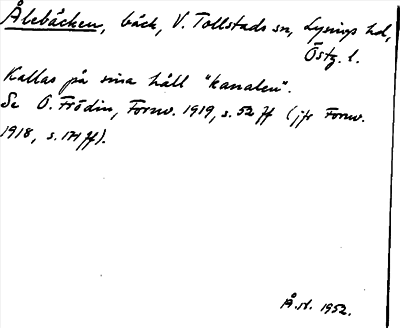 Ålebäcken, bäck, V. Tollstads sn, Lysings hd,
Östg. l.
Kallas på sina håll "kanalen".
Se O. Frödin, Fornv. 1919, s. 52 ff (jfr Fornv.
1918, s. 171 ff).
Å.st. 1952.